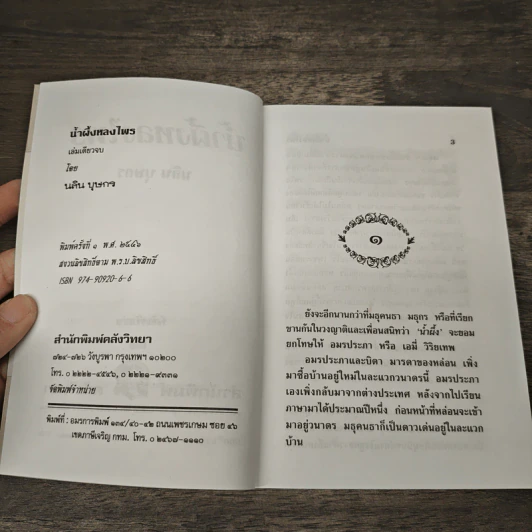 น้ำผึ้งหลงไพร
เล่มเดียวจบ
โดย
นลิน บุษกร
พิมพ์ครั้งที่ ๑ พ.ศ. ๒๕๔๖
สงวนลิขสิทธิ์ตาม พ.ร.บ.ลิขสิทธิ์
ISBN 974-90920-6-6
สำนักพิมพ์คลังวิทยา
๗๒๔-๗๒๖ วังบูรพา กรุงเทพฯ ๑๐๒๐๐
โทร. ๐ ๒๒๒๒-๔๕๔๖, ๐ ๒๒๒๑-๙๓๓๑
จัดพิมพ์จำหน่าย
พิมพ์ที่ : อมรการพิมพ์ ๑๓๔/๔๐-๔๒ ถนนเพชรเกษม ซอย ๔๖
เขตภาษีเจริญ กทม. โทร. ๐ ๒๔๖๗-๑๑๑๐
3
๑
ยังจะอีกนานกว่าที่มธุคนธา มธุกร หรือที่เรียก
ขานกันในวงญาติและเพื่อนสนิทว่า ‘น้ำผึ้ง’ จะยอม
ยกโทษให้ อมรประภา หรือ เอมี่ วิริยเทพ
อมรประภาและบิดา มารดาของหล่อน เพิ่ง
มาซื้อบ้านอยู่ใหม่ในละแวกวนาดรนี้ อมรประภา
เองเพิ่งกลับมาจากต่างประเทศ หลังจากไปเรียน
ภาษามาได้ประมาณปีหนึ่ง ก่อนหน้าที่หล่อนจะเข้า
มาอยู่วนาดร มธุคนธาก็เป็นดาวเด่นอยู่ในละแวก
บ้าน